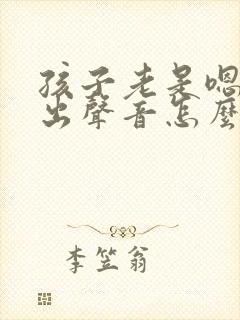 孩子老是嗯
出聲音怎麼
李笠翁